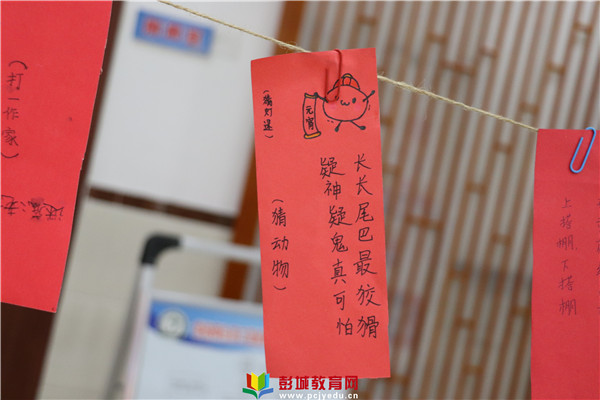 (打一作家)
(猜灯谜)
元宵
长长尾巴最狡猾
疑神疑鬼真可怕
(猜动物)
上搭棚下搭棚
彭城教育网
www.pcjyedu.cn